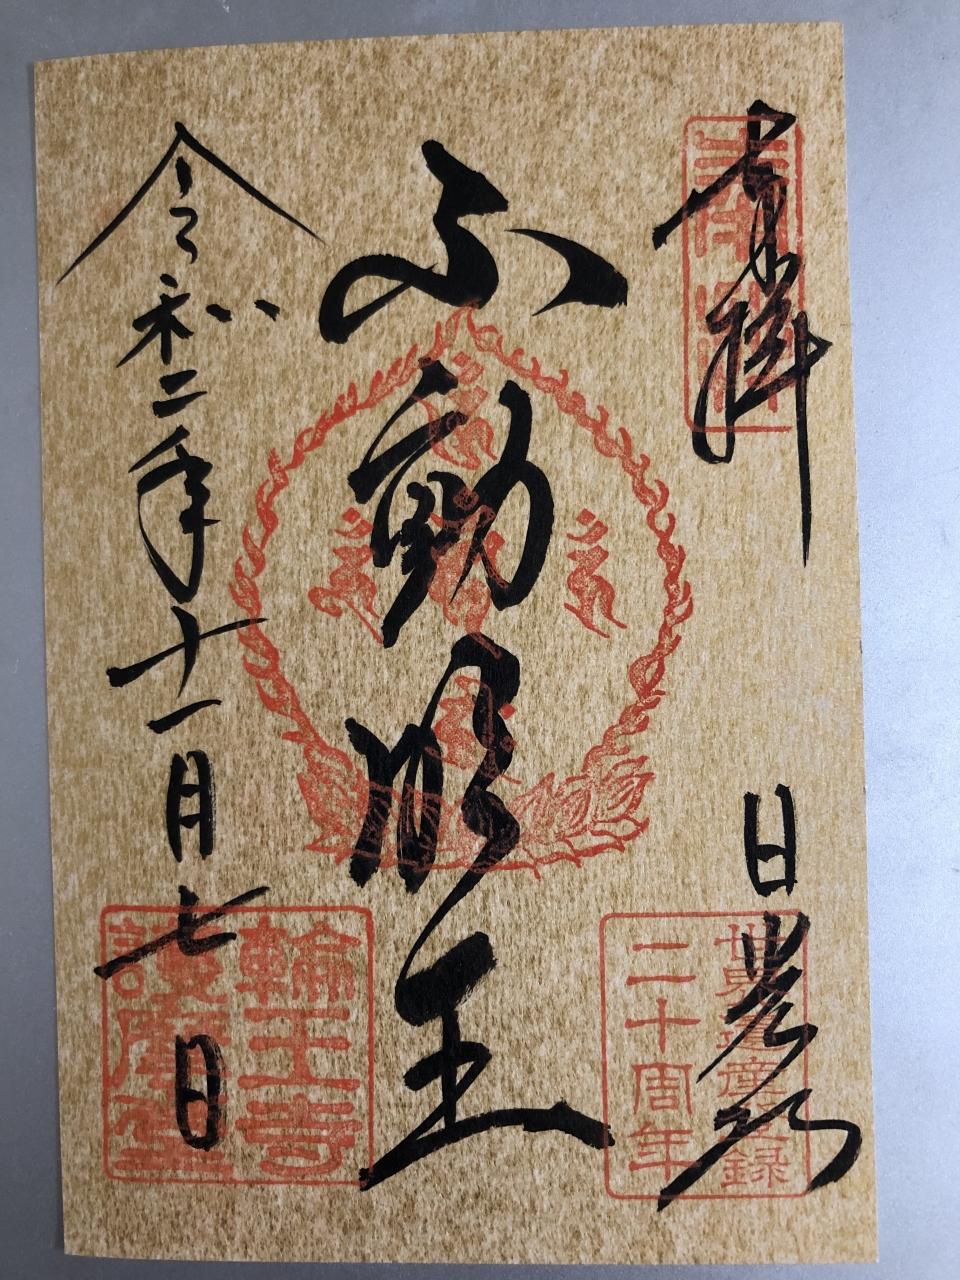 奉拝
日光山
不動明王
令和二年十一月七日
世界遺産登録
二十周年
輪王寺
護摩堂